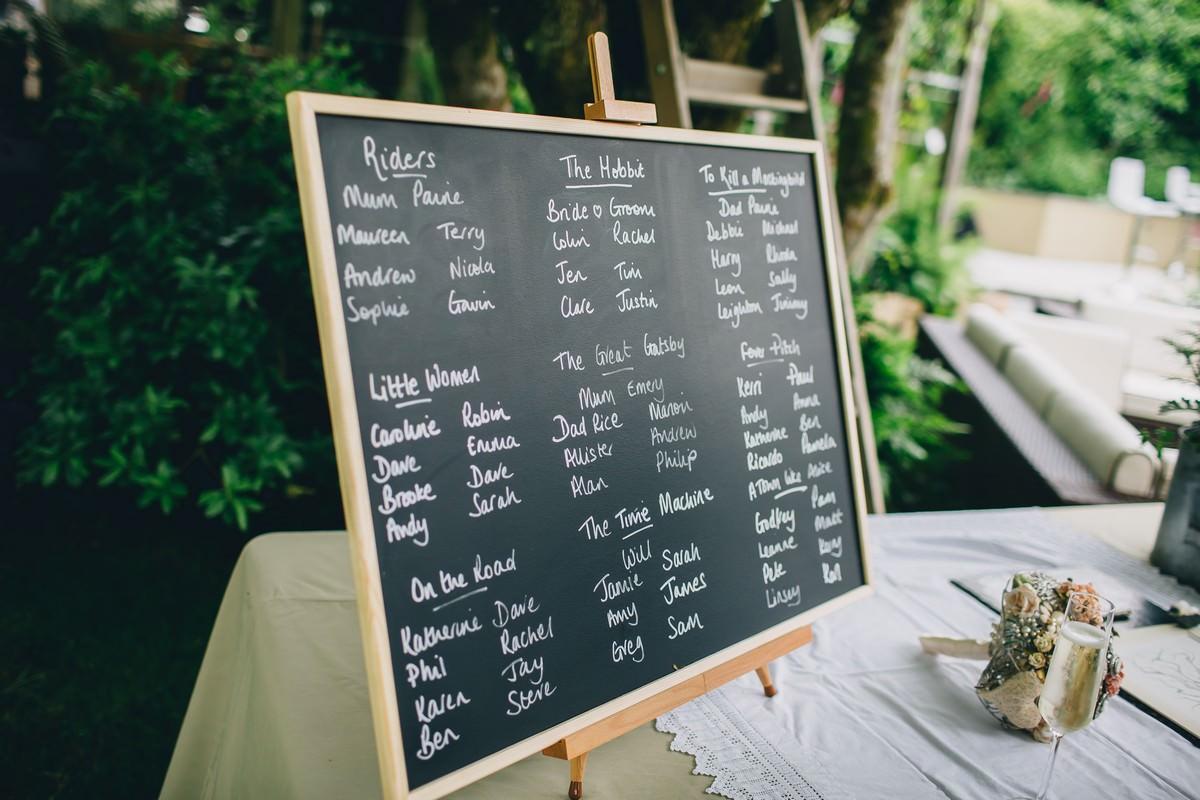 Riders
Mum Paine
Maureen Terry
Andrew Nicola
Sophie Gavin
Little Women
Caroline Robin
Dave Emma
Brooke Dave
Andy Sarah
On the Road
Katherine Dave
Phil Rachel
Karen Jay
Ben Steve
The Hobbit
Bride ♡ Groom
Colin Rachel
Jen Tim
Clare Justin
The Great Gatsby
Mum Emery
Dad Rice Marion
Allister Andrew
Alan Philip
The Time Machine
Will Sarah
Jamie James
Amy Sam
Greg
To Kill a Mockingbird
Dad Paine
Debbie Michael
Harry Rhonda
Leon Sally
Leighton Jimmy
Fever Pitch
Kerri Paul
Andy Anna
Katherine Ben
Ricardo Pamela
A Town like Alice
Godfrey Pam
Leanne Matt
Pete
Linsey